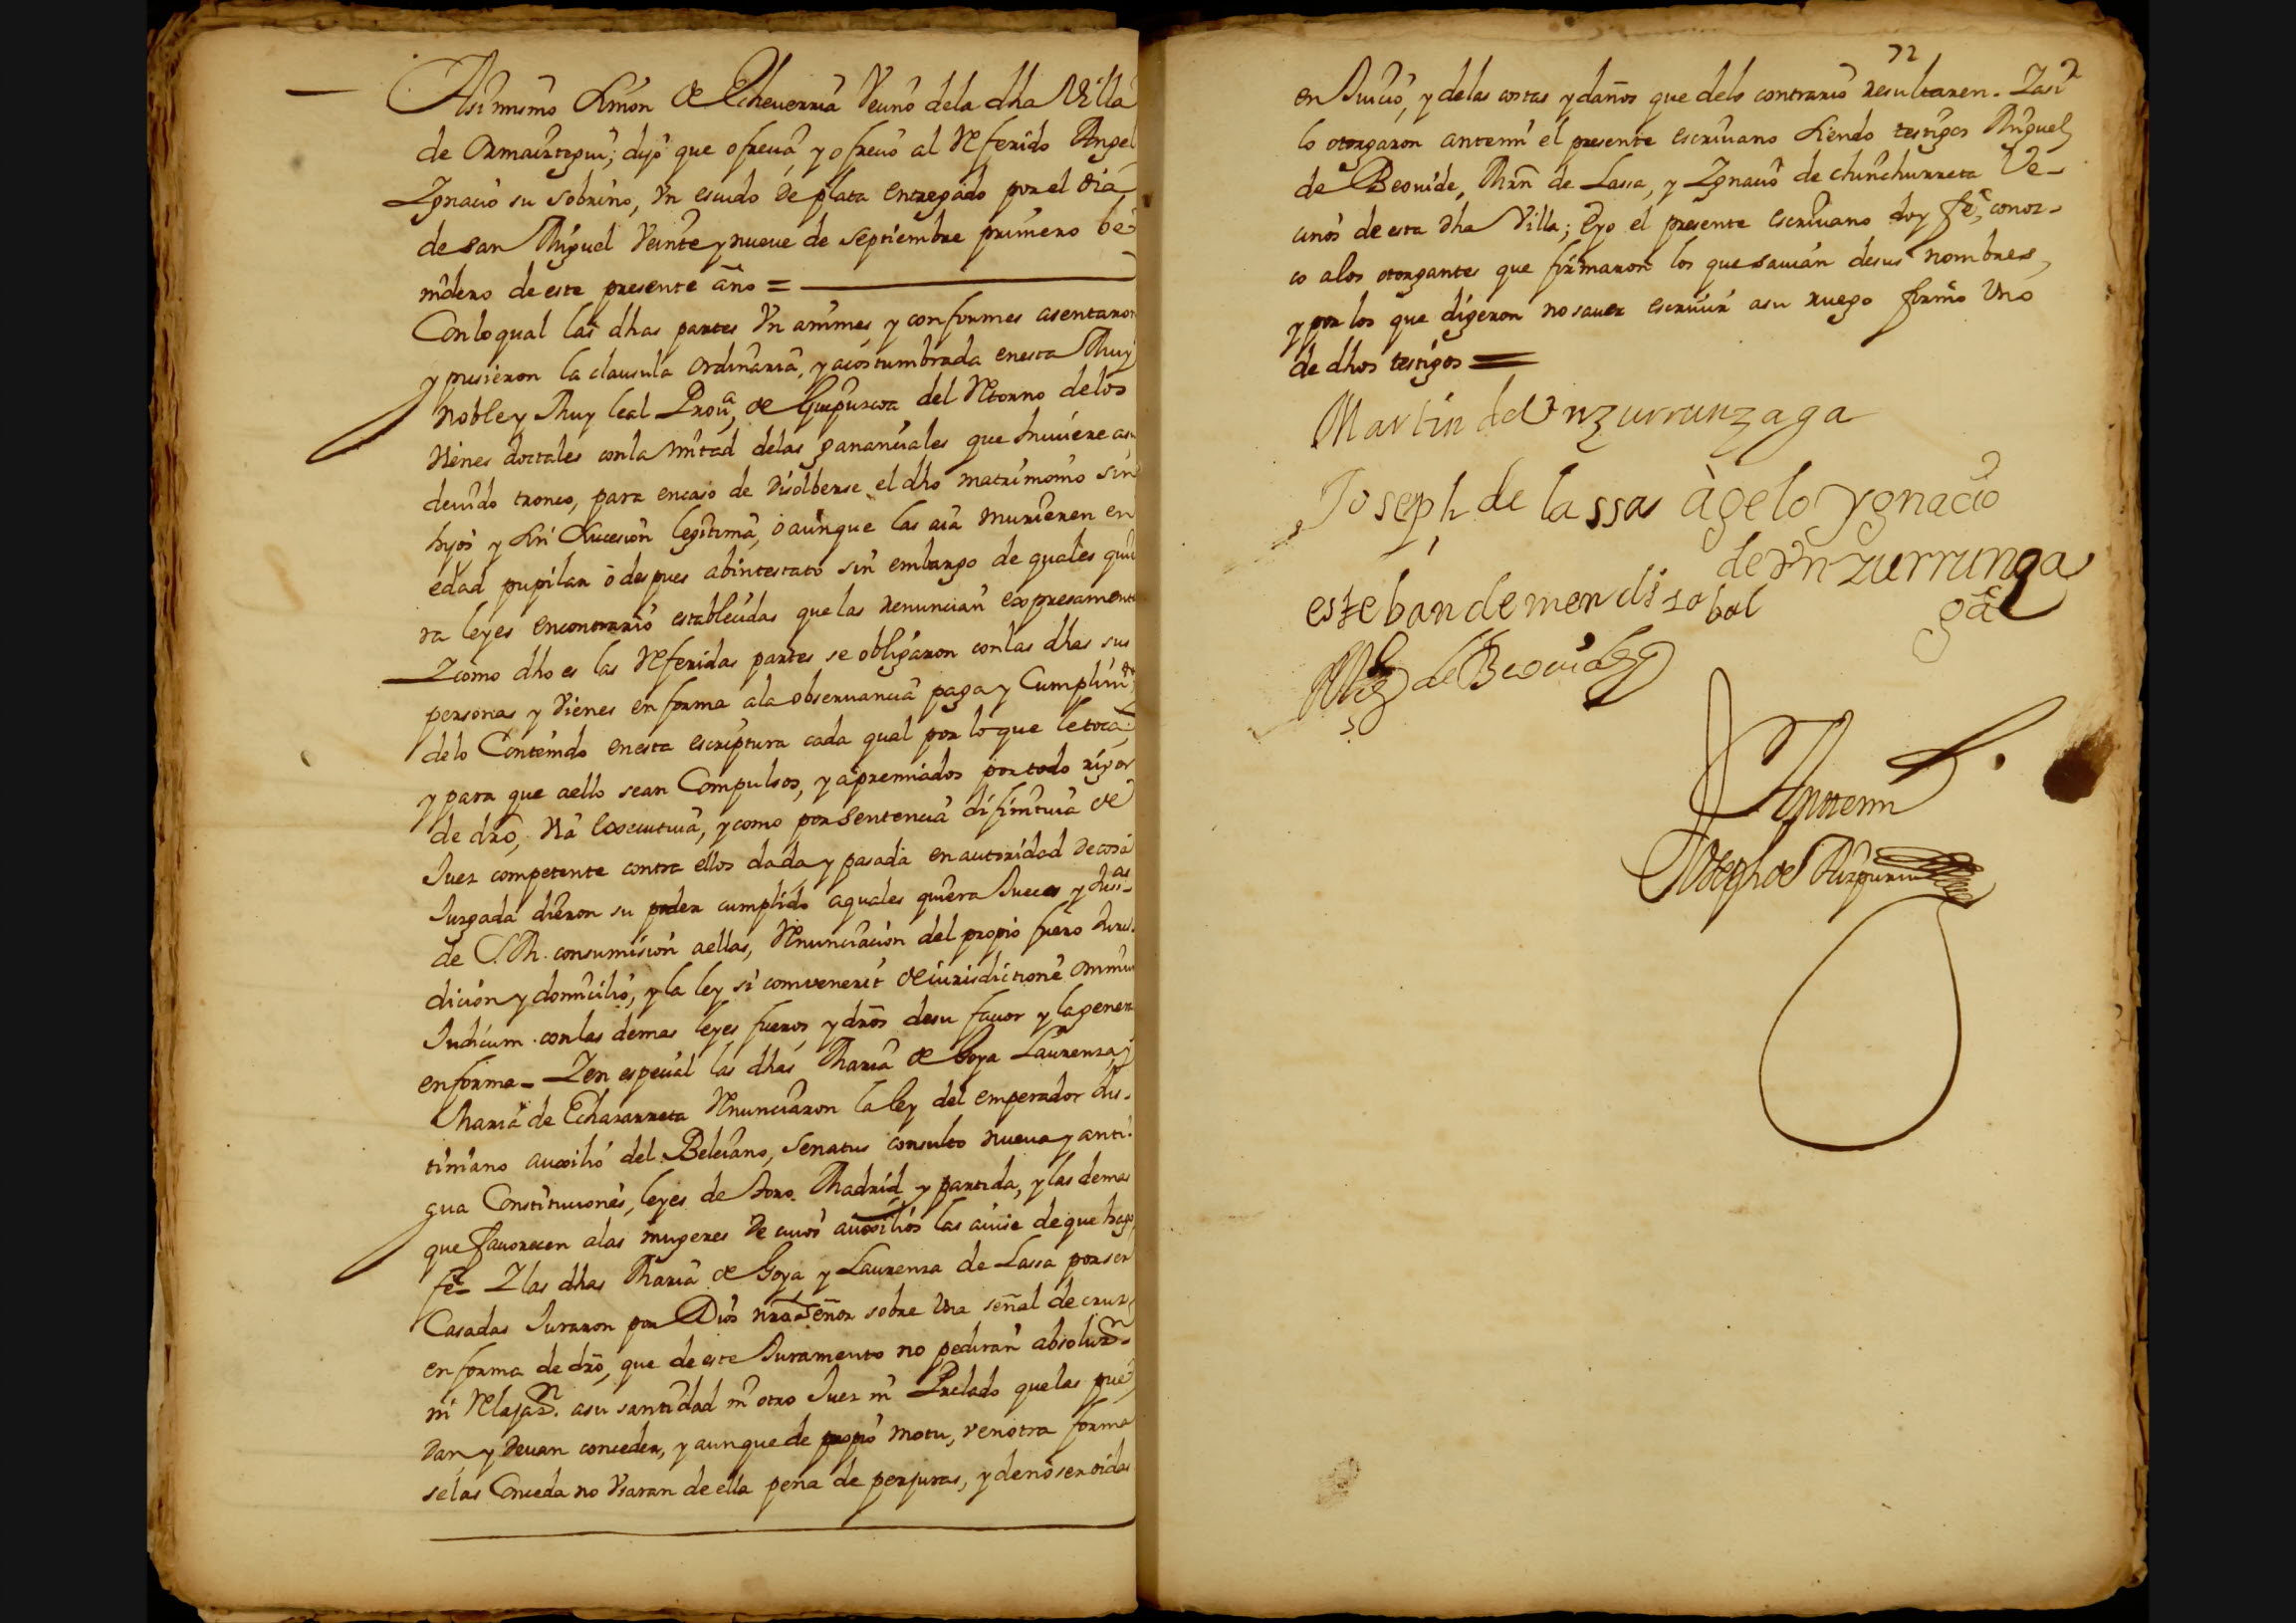 Asimismo Simon de Echeverria Vecino dela dha Villa
de Ormaiztegui; dijo que ofrecia, y ofrecio al Referido Angel
Ygnacio su sobrino, Vn escudo de plata entregado por el dia
de san Miguel Veinte y nueve de septiembre primero be-
nidero de este presente año =
Con lo qual las dhas partes Vn animes, y conformes asentaron
y pusieron la clausula ordinaria, y acostumbrada en esta Muy
noble y Muy leal Prou.ª de Guipuzcoa del Retorno delos
Vienes doctales con la mitad delas gananciales que huuiere asu
deuido tronco, para encaso de disolberse el dho matrimonio sin
hijos y sin sucesion legitima, o aunque las aia murieren en
edad pupilar o despues abintestato sin embargo de quales quie
ra leyes encontrario establecidas que las renuncian expresamente
Y como dho es las Referidas partes se obligaron con las dhas sus
personas y Vienes en forma ala obseruancia paga y Cumplim.to
delo Contenido en esta escriptura cada qual por lo que le toca,
y para que aello sean Compulsos, y apremiados por todo rigor
de dro, Via executiua, y como por Sentencia difinitiua de
Juez competente contra ellos dada y pasada en autoridad de cosa
Juzgada dieron su poder cumplido a quales quiera Jueces y Jus.as
de S.M. con sumision aellas, Renunciacion del propio fuero Juris
dicion y domicilio, y la ley si convenerit de iurisdictione omnium
Judicum. con las demas leyes fueros, y dros desu fauor y la gener
en forma - Y en especial las dhas Maria de Goya Laurenza, y
Maria de Echazarreta Renunciaron la ley del emperador Jus-
tiniano auxilio del Beleiano, Senatus consulto nueua y anti-
gua Constituciones, leyes de toro. Madrid y partida, y las demas
que fauorecen alas mugeres de cuios auxilios las auise de que hago
fe - Y las dhas Maria de Goya y Laurenza de Lassa por ser
Casadas Juraron por Dios nro Señor sobre Vna señal de cruz
en forma de dro, que de este Juramento no pediran absoluz.n
ni Relajaz.n asu santidad ni otro Juez ni Prelado que las pue
dan y deuan conceder, y aunque de propio motu, v en otra forma
selas Conceda no Vsaran de ella pena de perjuras, y de no ser oidas
72
en Juicio, y delas costas y daños que delo contrario resultaren. Y asi
lo otorgaron antemi el presente escriuano siendo testigos Miguel
de Beouide, Mrn de Lassa, y Ygnacio de chinchurreta Ve-
cinos de esta dha Villa; E yo el presente escriuano doy fe, conoz-
co alos otorgantes que firmaron los que sauian desus nombres,
y por los que digeron no sauer escriuir asu ruego firmo Vno
de dhos testigos =
Martin de Vnzurrunzaga
Joseph de lassa
àgelo ygnacio
de Vnzurrunza
ga
esteban de mendisabal
Mig.l de Beouide
Anttemi
Joseph de Aizpuru